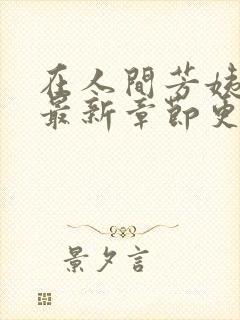 在人間芳姨
最新章節更
景夕言